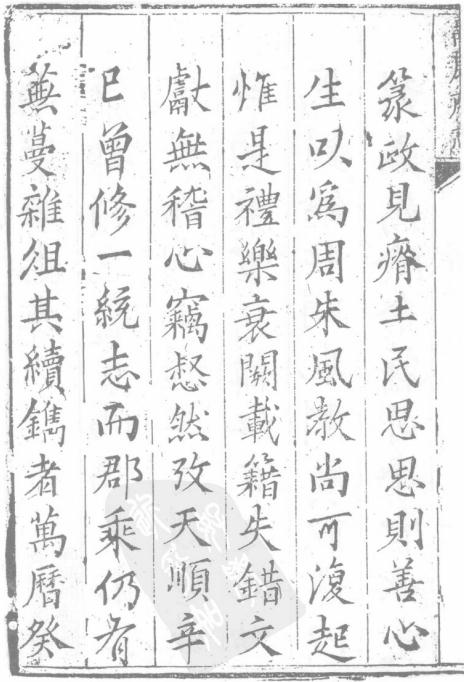 篆政見瘠土民思思則善心
生㕥爲周朱風教尚可復起
惟是禮樂衰闕載籍失錯文
獻無稽心竊惄然攷天順辛
巳曾修一統志而郡乘仍有
蕪蔓雜俎其續鐫者萬曆癸